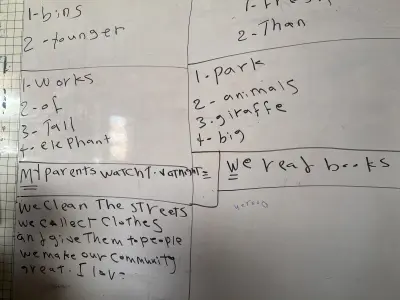 1-bins
2-younger
2-Than
1-works
2-of
3-Tall
4-elephant
1.park
2-animals
3.giraffe
4-big
My parents watch T.V at night
We read books
we clean The streets
we collect clothes
and give Them to people
we make our community
great. I love